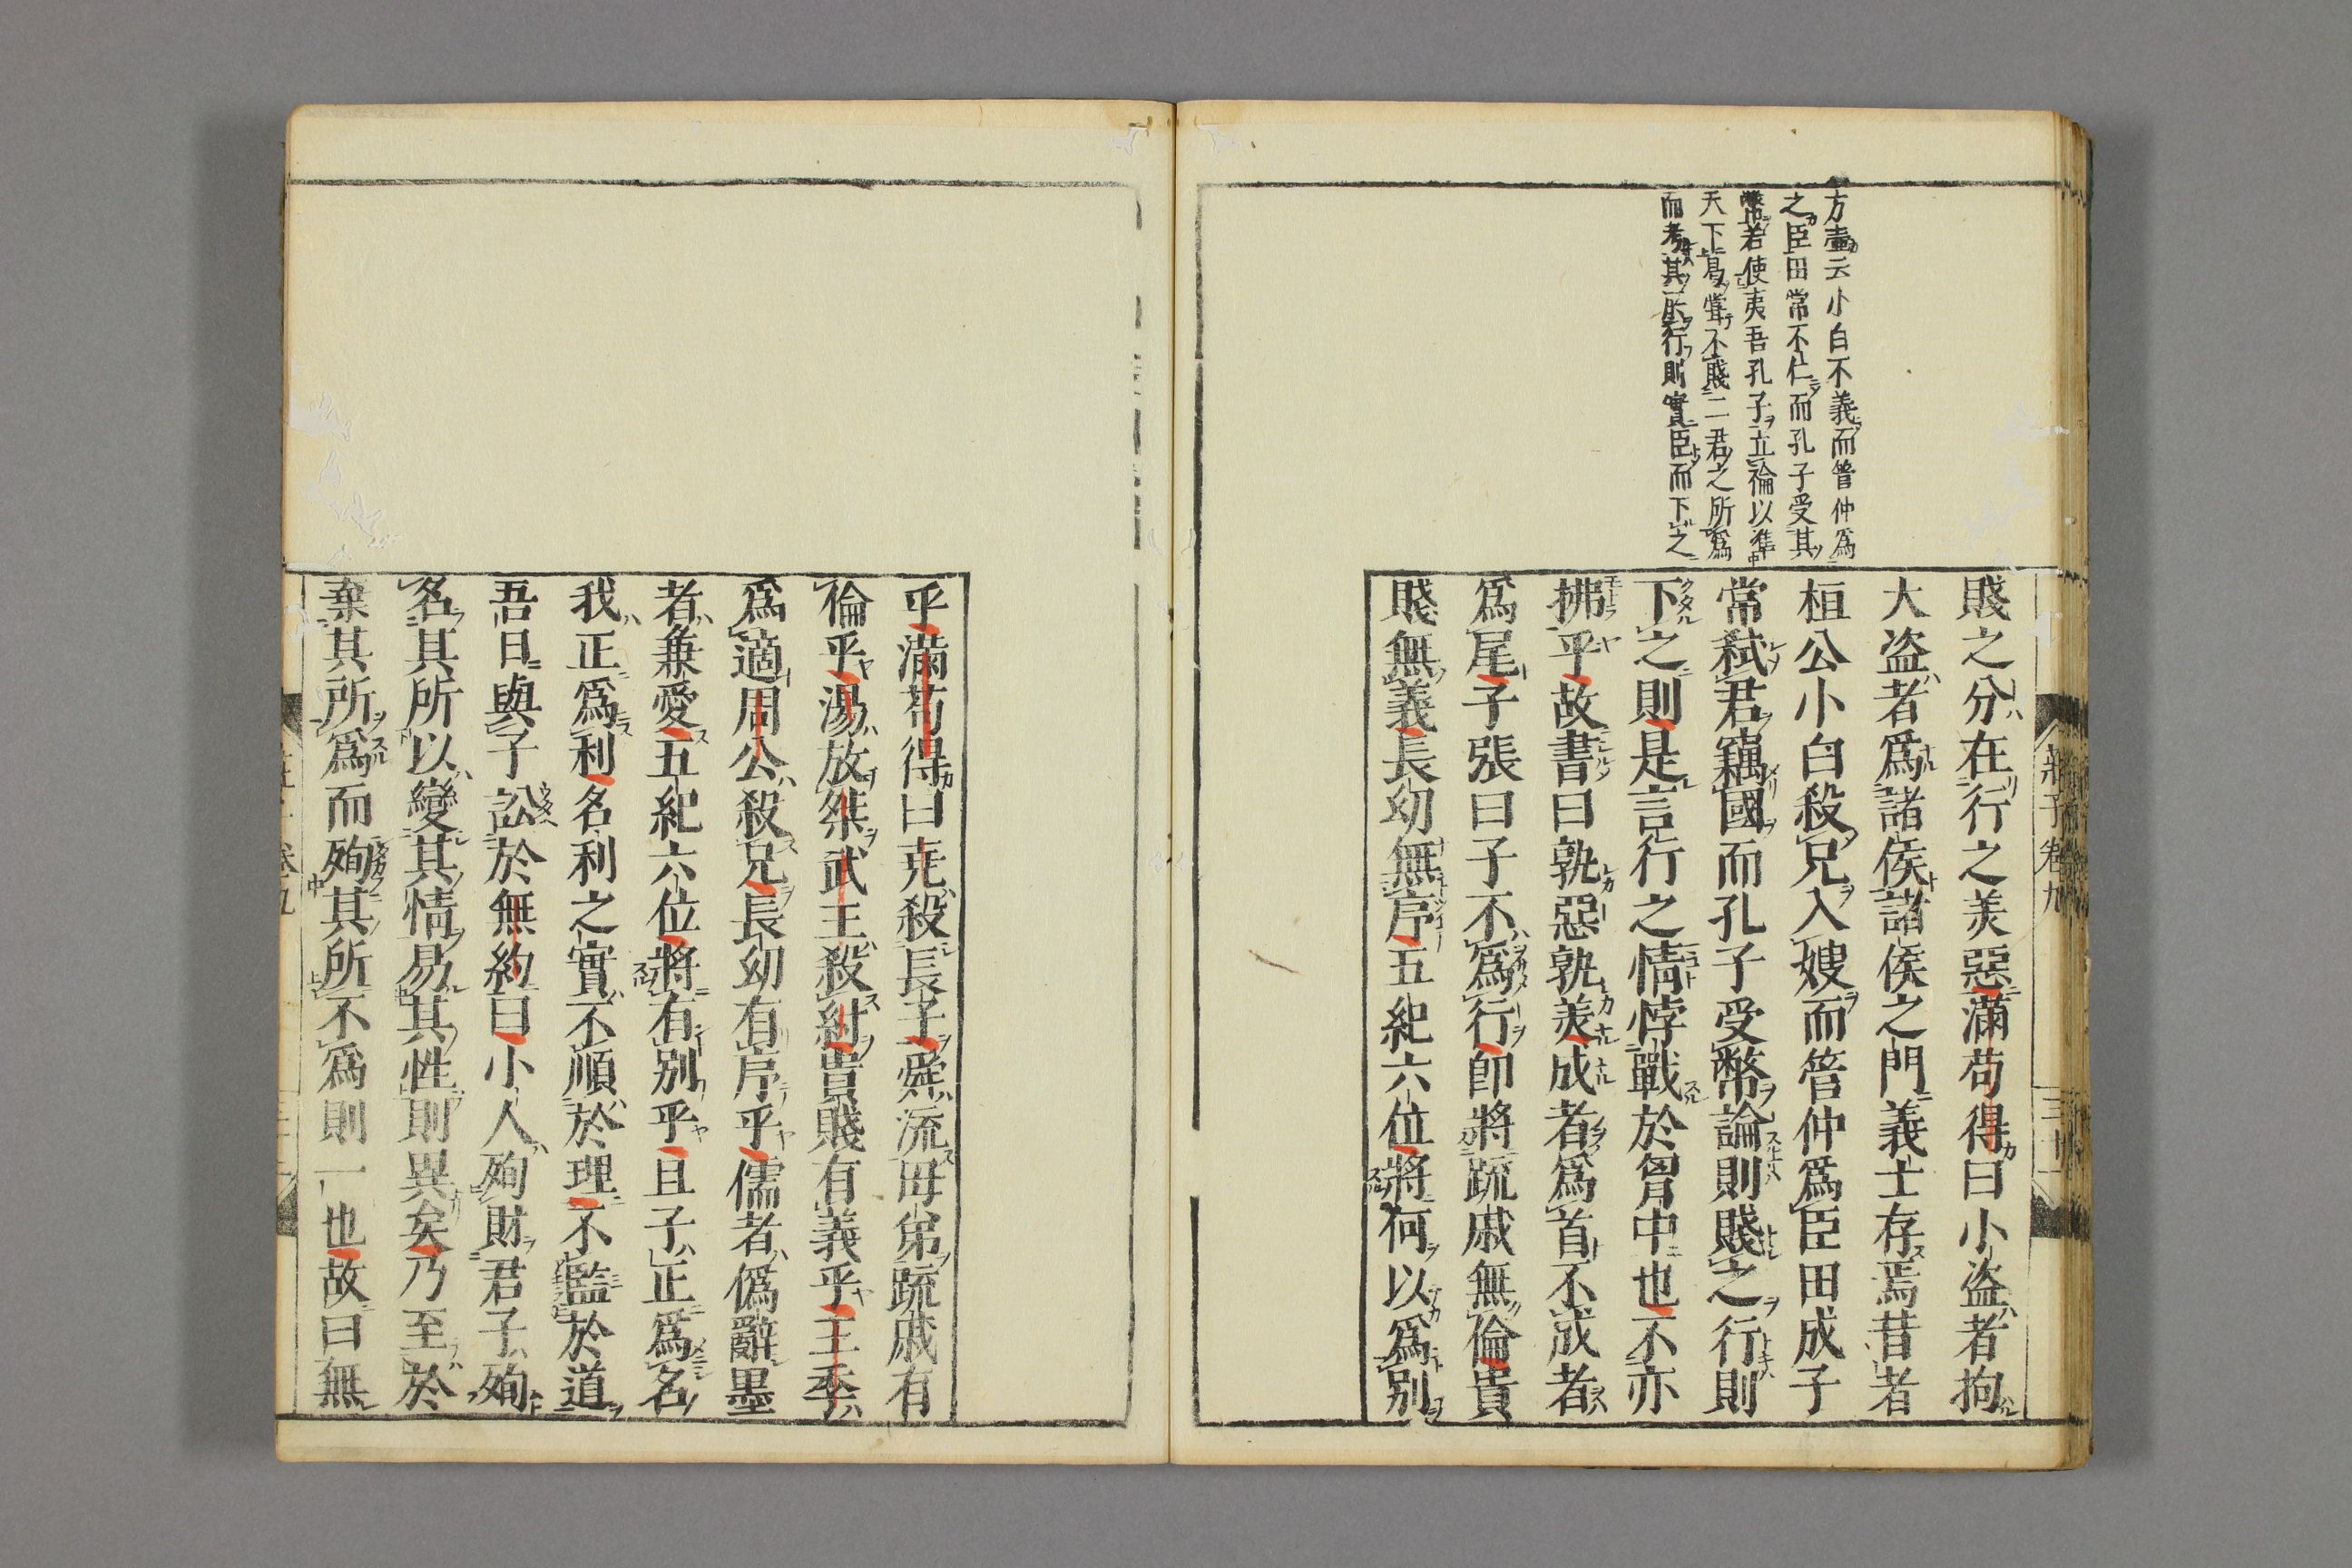 方壺云小白不義而管仲爲
之臣田常不仁而孔子受其
幣若使夷吾孔子立論以準
天下曷嘗不賤二君之所爲
而考其所行則實臣而下之
賤之分在行之美惡滿苟得曰小盜者拘
大盜者爲諸侯諸侯之門義士存焉昔者
桓公小白殺兄入嫂而管仲爲臣田成子
常弑君竊國而孔子受幣論則賤之行則
下之則是言行之情悖戰於胷中也不亦
拂乎故書曰孰惡孰美成者爲首不成者
爲尾子張曰子不爲行卽將疏戚無倫貴
賤無義長幼無序五紀六位將何以爲別
莊子卷九
乎滿苟得曰堯殺長子舜流母弟疏戚有
倫乎湯放桀武王殺紂貴賤有義乎王季
爲適周公殺兄長幼有序乎儒者僞辭墨
者兼愛五紀六位將有別乎且子正爲名
我正爲利名利之實不順於理不監於道
吾日與子訟於無約曰小人殉財君子殉
名其所以變其情易其性則異矣乃至於
棄其所爲而殉其所不爲則一也故曰無